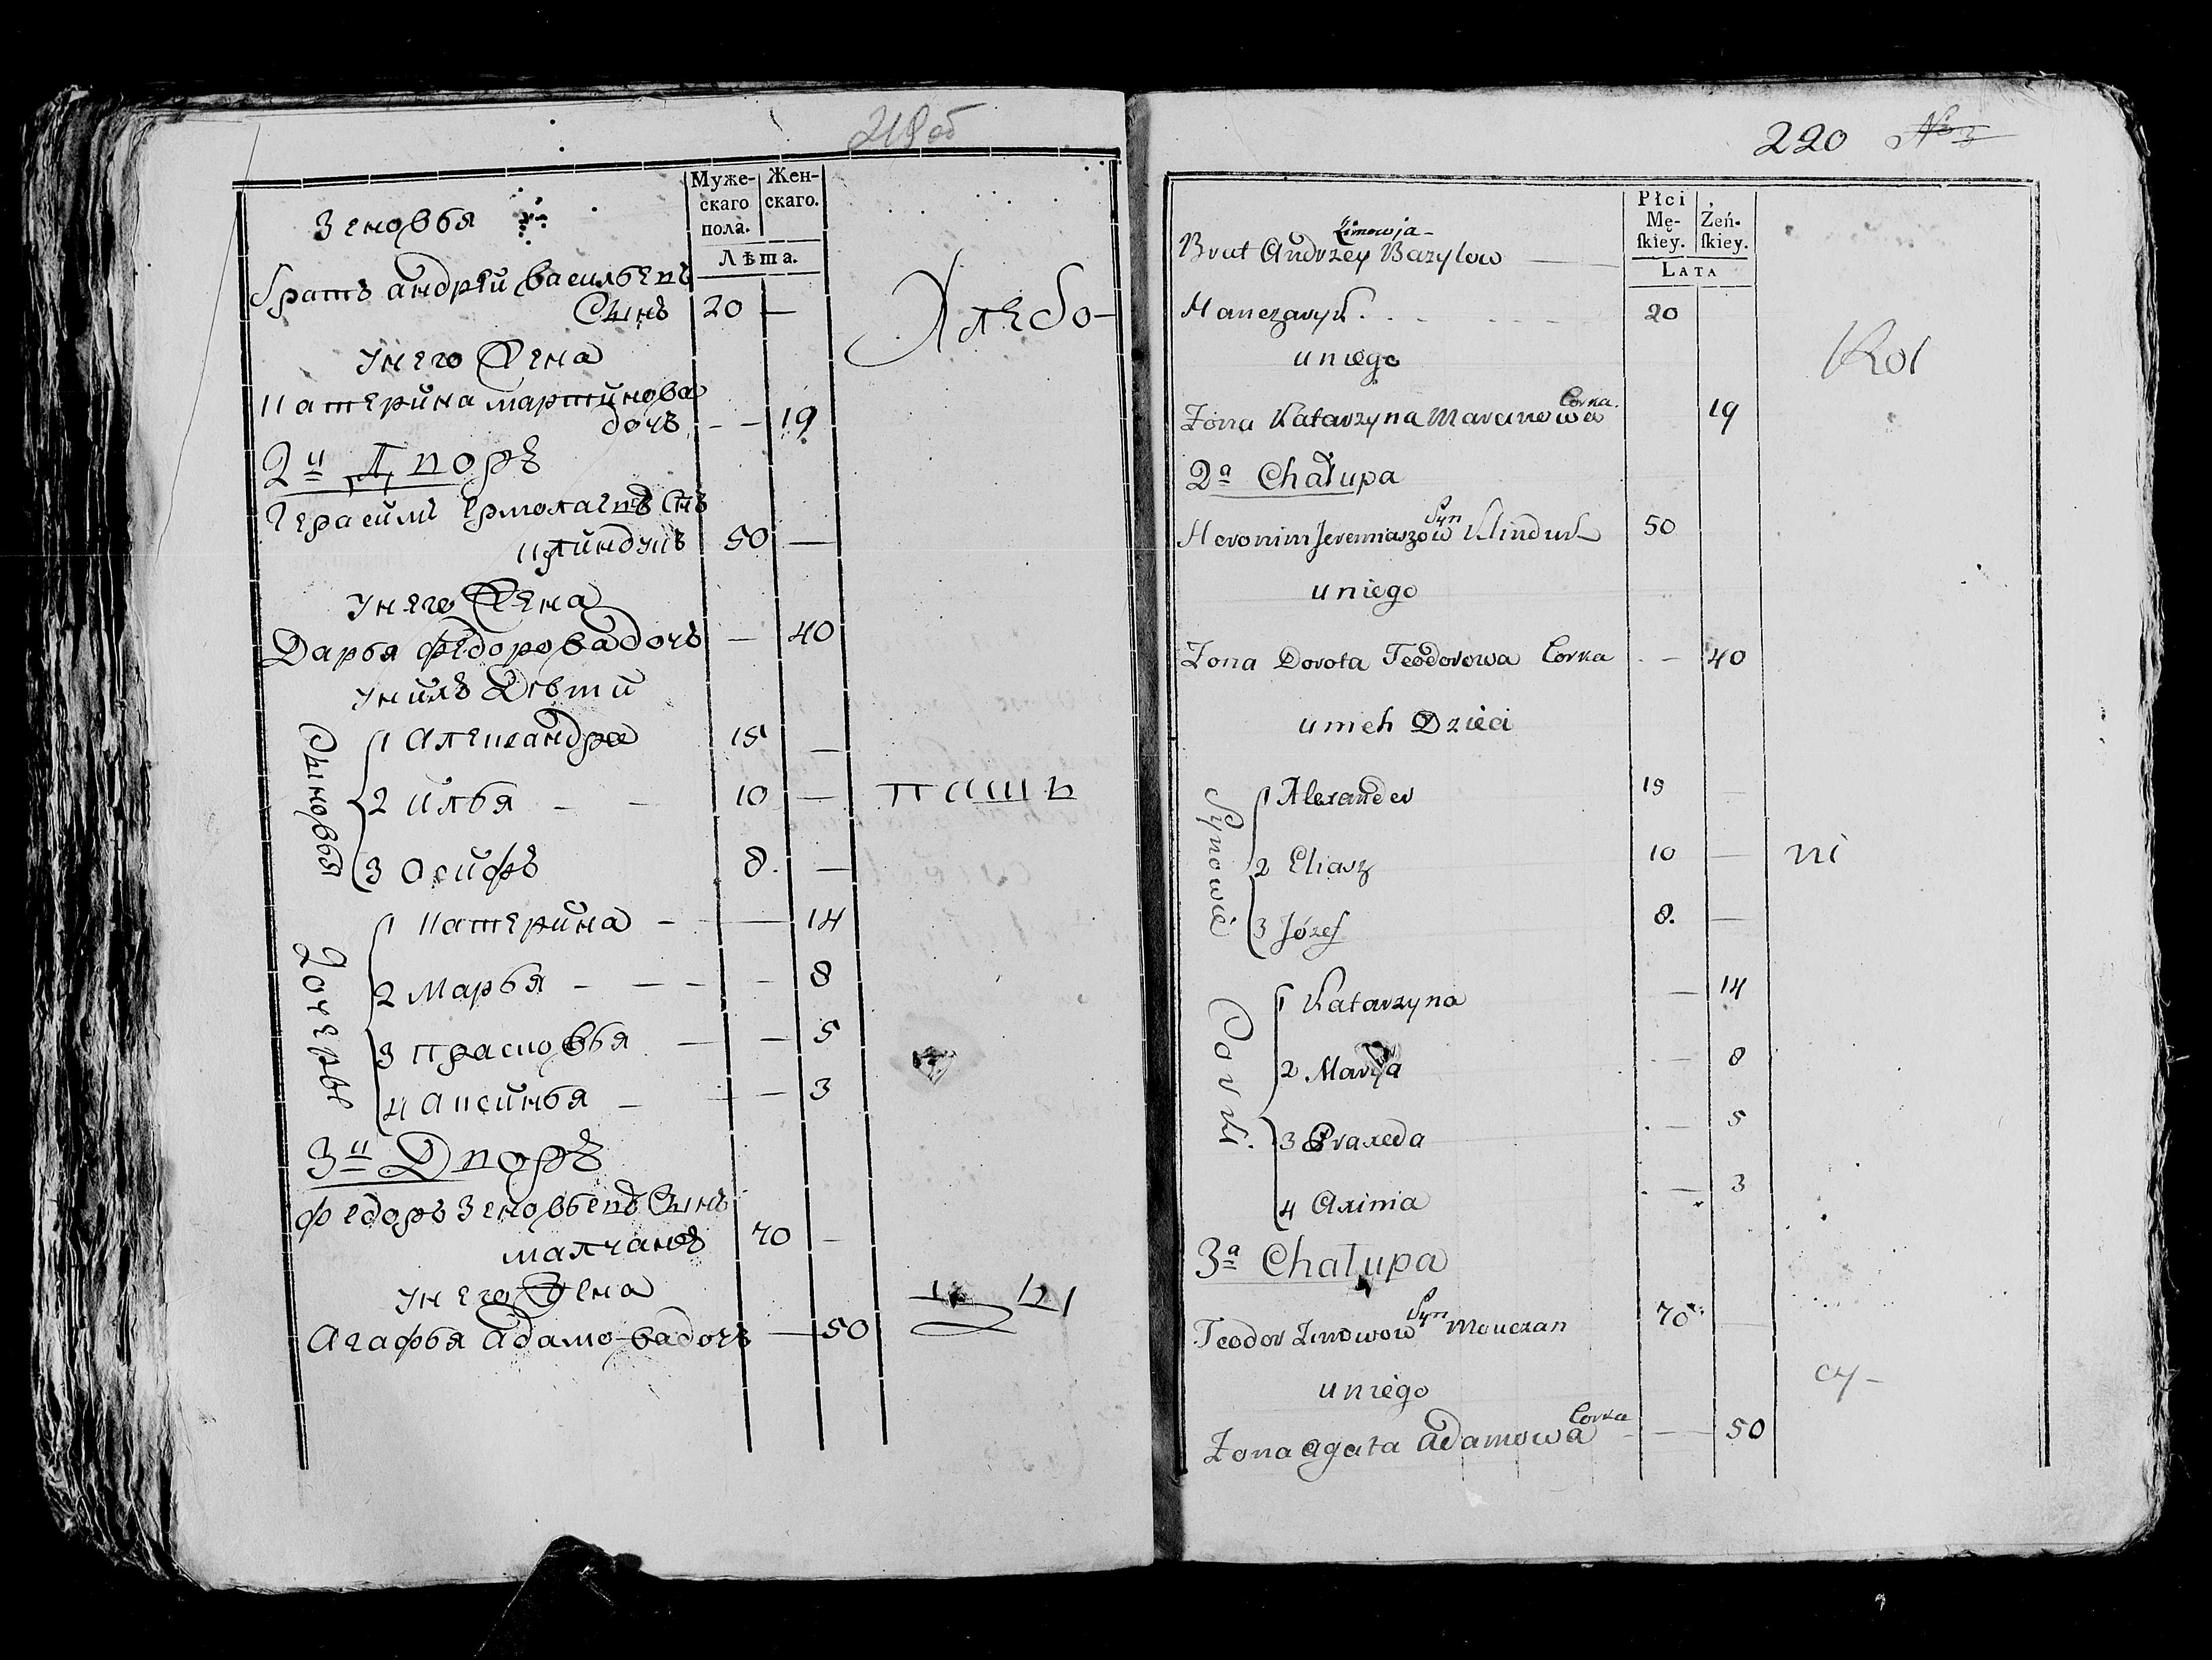 219об
Муже-
скаго
пола.
Жен-
скаго.
Лѣта.
Зеновья
братъ андрей васильевъ
Сынъ 20 —
Унего Жена
Катерина мартинова
дочь — — 19
2й Дворъ
Герасимъ Ермолаевъ Снъ
Клиндукъ 50 —
Унего Жена
Дарья федорова дочь — 40
Унихъ Дѣти
Сыновья
1 Александръ 15 —
2 илья — — 10 —
3 Осифъ 8. —
Дочери
1 Катерина — — 14
2 Марья — — — — 8
3 прасковья — — 5
4 аксинья — — — 3
3й Дворъ
федоръ Зеновьевъ Сынъ
малчанъ 70 —
Унего Жена
Агафья адамова дочь — 50
Хлебо-
паш
цы
220 № 3
Płci
Mę-
ſkiey.
Żeń-
ſkiey.
LATA
Zimowja
Brat Andrzey Bazylow
20
uniego
Corka
Żona Katarzyna Marcinowa 19
2a Chałupa
Syn
Heronim Jeremiaszow Klinduk 50
uniego
Zona Dorota Teodorowa Corka — 40
unich Dzieci
Synowie
1 Alexander 15 —
2 Eliasz 10 —
3 Józef 8. —
Corki
1 Katarzyna — 14
2 Marya — 8
3 Praxeda — 5
4 Axinia — 3
3a Chałupa
Syn
Teodor Zinowow Mouczan 70 —
uniego
Corka
Zona agata adamowa — — 50
Rol
ni
cy